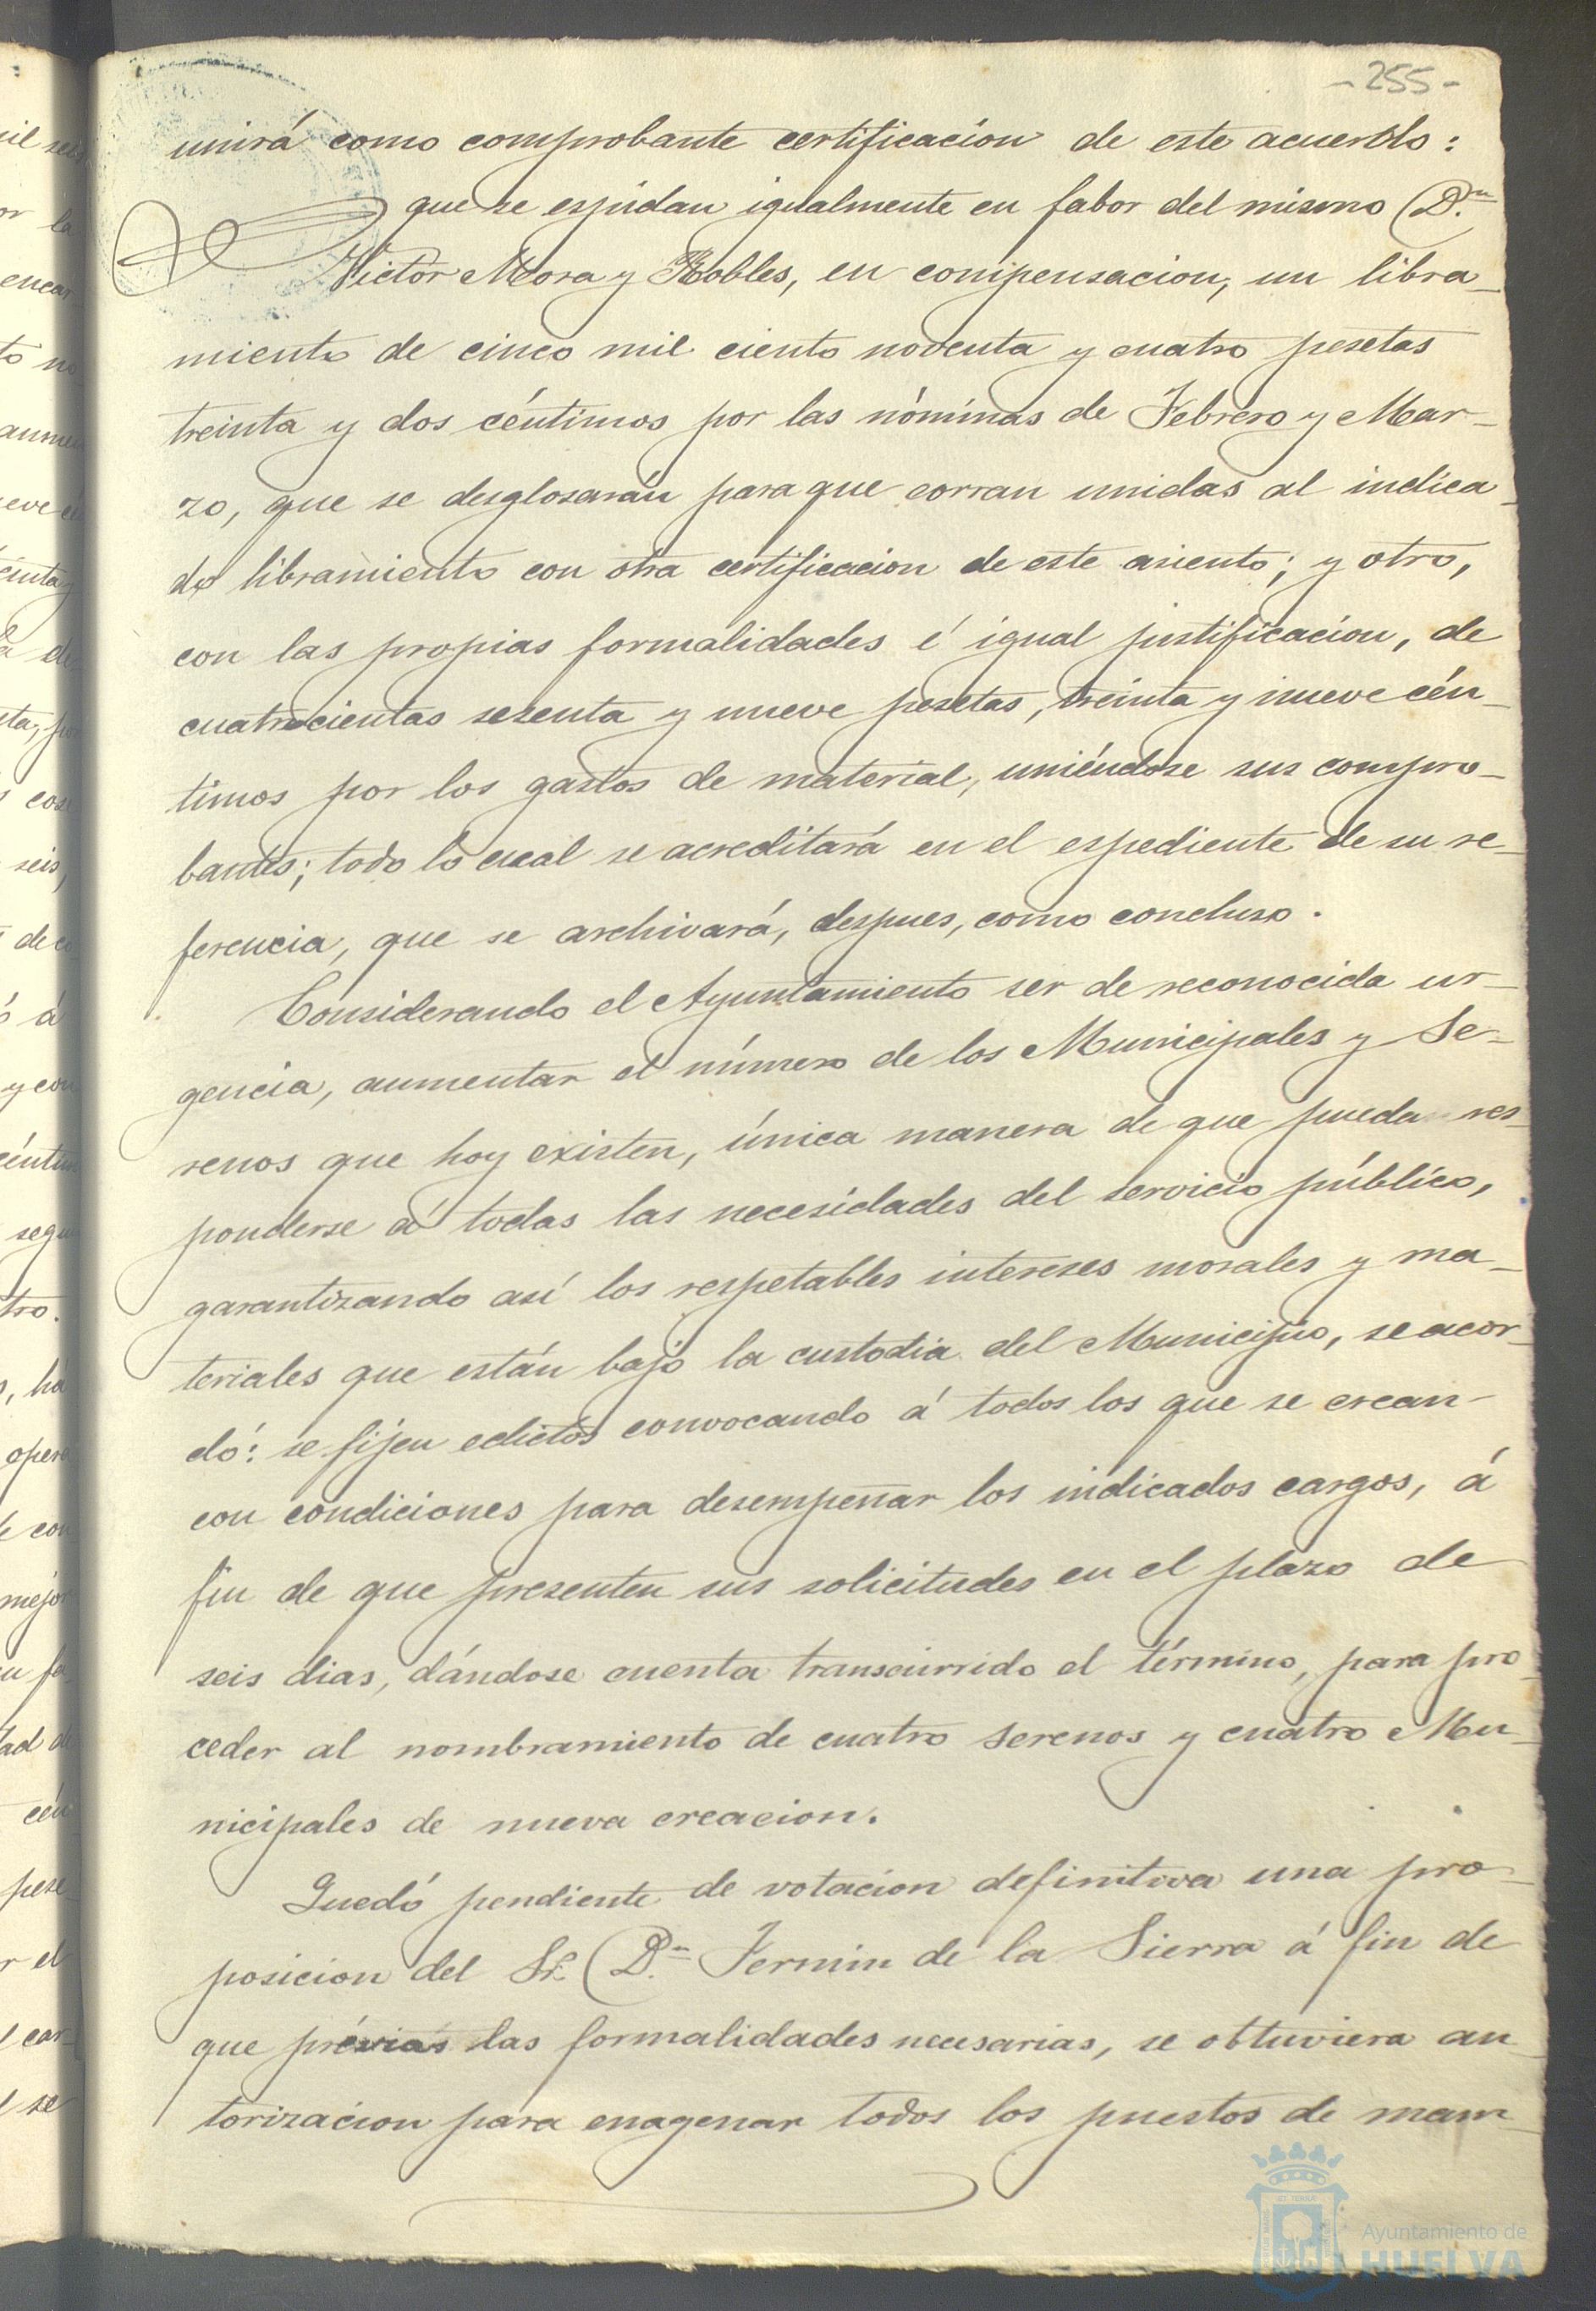 - 255 -
unirá como comprobante certificación de este acuerdo:
que se espidan igualmente en fabor del mismo D.n
Victor Mora y Robles, en compensacion, un libra_
miento de cinco mil ciento noventa y cuatro pesetas
treinta y dos céntimos por las nóminas de Febrero y Mar_
zo, que se desglosarán para que corran unidas al indica_
do libramiento con otra certificacion de este asiento; y otro,
con las propias formalidades é igual justificacion, de
cuatrocientas sesenta y nueve pesetas, treinta y nueve cén_
timos por los gastos de material, uniéndose sus compro_
bantes; todo lo cual se acreditará en el espediente de su re_
ferencia, que se archivará, despues, como concluso.
Considerando el Ayuntamiento ser de reconocida ur_
gencia, aumentar el número de los Municipales y Se_
renos que hoy existen, única manera de que pueda res_
ponderse á todas las necesidades del servicio público,
garantizando así los respetables intereses morales y ma_
teriales que están bajo la custodia del Municipio, se acor_
dó: se fijen edictos convocando á todos los que se crean
con condiciones para desempeñar los indicados cargos, á
fin de que presenten sus solicitudes en el plazo de
seis dias, dándose cuenta transcurrido el término, para pro_
ceder al nombramiento de cuatro Serenos y cuatro Mu_
nicipales de nueva creacion.
Quedó pendiente de votacion definitiva una pro_
posicion del Sr. D.n Fermin de la Sierra á fin de
que prévias las formalidades necesarias, se obtuviera au_
torizacion para enagenar todos los puestos de mam_
Ayuntamiento de
HUELVA